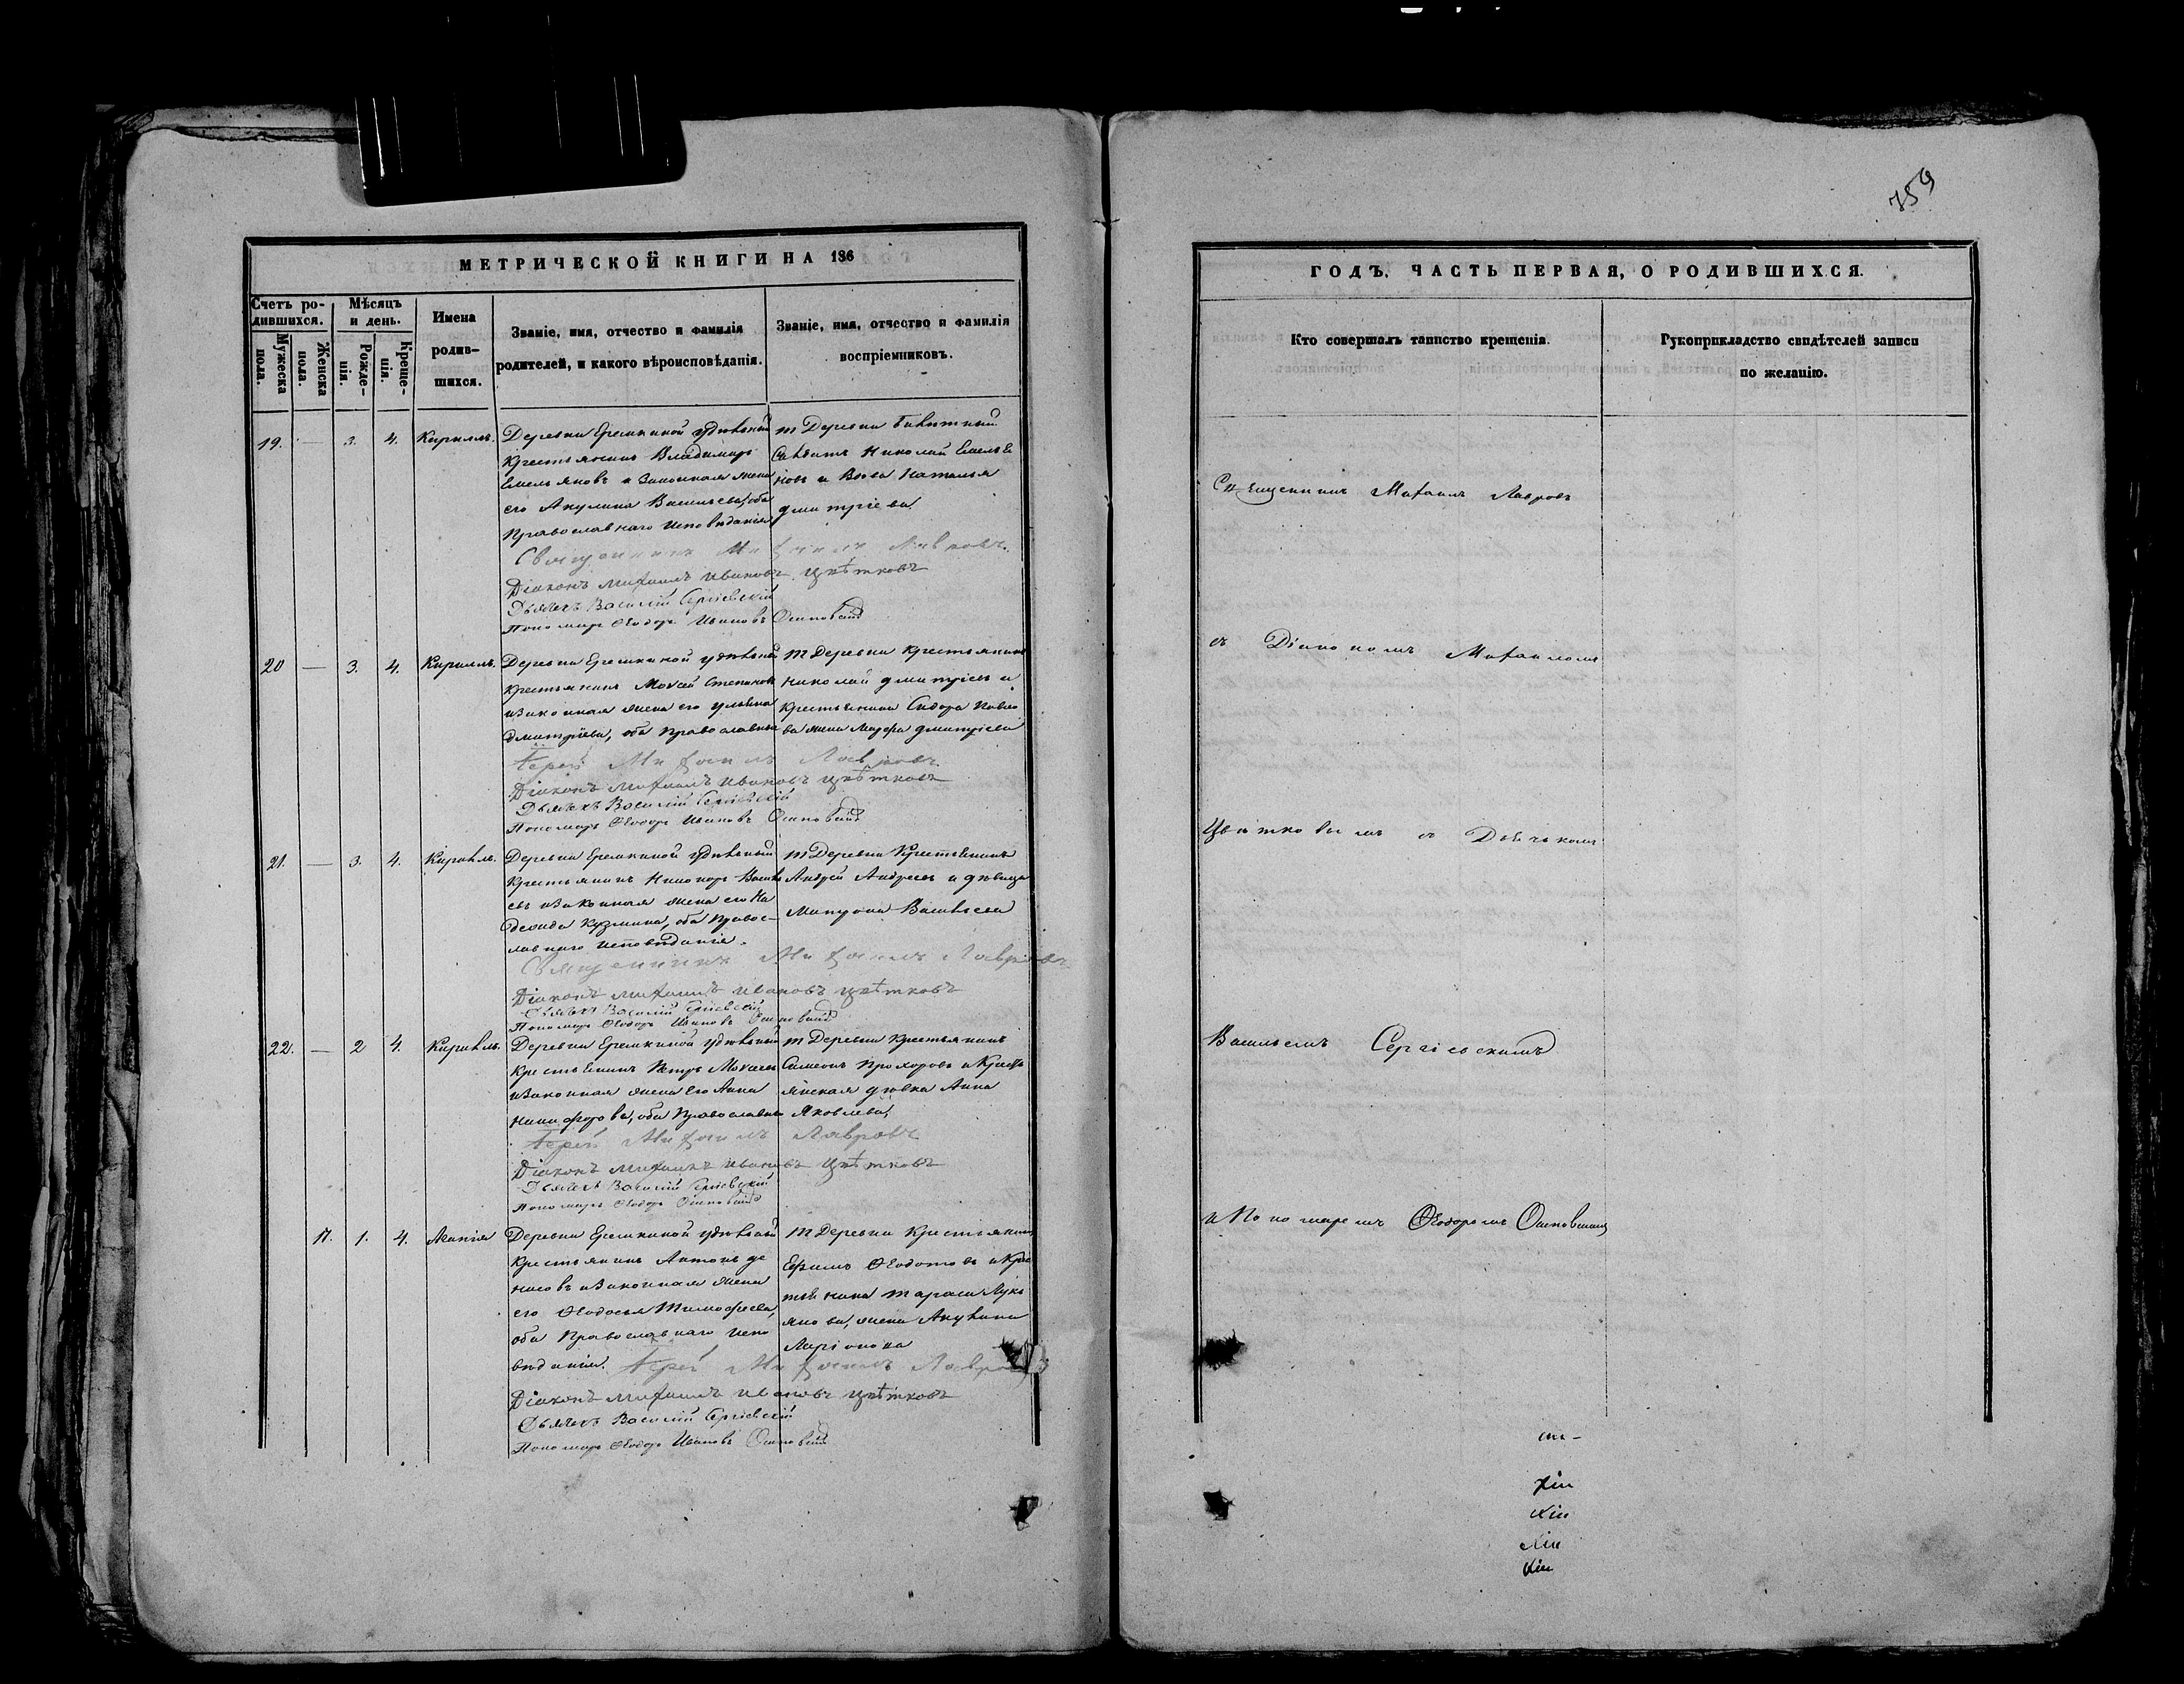 759
МЕТРИЧЕСКОЙ КНИГИ НА 186
Счетъ ро-
дившихся.
Мужеска пола.
Женска пола.
Мѣсяцъ
и день.
Рожде-
нія.
Креще-
нія.
Имена
родив-
шихся.
Званіе, имя, отчество и фамилія
родителей, и какого вѣроисповѣданія.
Званіе, имя, отчество и фамилія
воспріемниковъ.
19. — 3. 4. Кириллъ.
Деревни Еремкиной удѣльный
Крестьянинъ Владимиръ
Емельяновъ и Законная жена
его Акулина Васильева, оба
Православнаго Исповѣданія
Деревни
Николай Емелья
новъ и Наталья
Дмитріева
Священникъ Михаилъ Лавровъ.
Діаконъ Михаилъ Ивановъ Цвѣтковъ
Дьячекъ Василій Сергіевскій
Пономарь Ѳеодоръ Ивановъ
20 — 3. 4. Кириллъ.
Деревни Еремкиной удѣльный
Крестьянинъ Мокей Степановъ
и Законная жена его Ульяна
Дмитріева, оба Православные
Деревни Крестьянинъ
Николай Дмитріевъ и
Крестьянина Сидора Павло
ва жена Марфа Дмитріева
Іерей Михаилъ Лавровъ.
Діаконъ Михаилъ Ивановъ Цвѣтковъ
Дьячекъ Василій Сергіевскій
Пономарь Ѳеодоръ Ивановъ
21. — 3. 4. Кирилъ.
Деревни Еремкиной удѣльный
Крестьянинъ Никоноръ Василь
евъ и Законная жена его На
дежда Кузмина, оба Правос-
лавнаго Исповѣданія.
Деревни Крестьянинъ
Андрей Андреевъ и дѣвица
Васильева
Священникъ Михаилъ Лавровъ
Діаконъ Михаилъ Ивановъ Цвѣтковъ
Дьячекъ Василій Сергіевскій
Пономарь Ѳеодоръ Ивановъ
22. — 2 4. Кирилъ.
Деревни Еремкиной удѣльный
Крестьянинъ Петръ Мокеевъ
и Законная жена Его Анна
Никифорова, оба Православные
Деревни Крестьянинъ
Симеонъ Прохоровъ и Кресть
янская дѣвка Анна
Яковлева,
Іерей Михаилъ Лавровъ
Діаконъ Михаилъ Ивановъ Цвѣтковъ
Дьячекъ Василій Сергіевскій
Пономарь Ѳеодоръ
17. 1. 4.
Деревни Еремкиной удѣльный
Крестьянинъ Антонъ Де
нисовъ и Законная жена
его Ѳеодосья Тимофеева,
оба Православнаго Испо
вѣданія.
Деревни Крестьянинъ
Ефимъ Ѳедотовъ и Крес
тьянина Тараса Лукь
янова, жена Акулина
Ларіонова
Іерей Михаилъ Лавровъ
Діаконъ Михаилъ Ивановъ Цвѣтковъ
Дьячекъ Василій Сергіевскій
Пономарь Ѳеодоръ Ивановъ
ГОДЪ, ЧАСТЬ ПЕРВАЯ, О РОДИВШИХСЯ.
Кто совершалъ таинство крещенія.
Рукоприкладство свидѣтелей записи
по желанію.
Священникъ Михаилъ Лавровъ
съ Діакономъ Михаиломъ
Цвѣтковымъ съ Дьячкомъ
Васильемъ Сергіевскимъ
и Пономаремъ Ѳеодоромъ